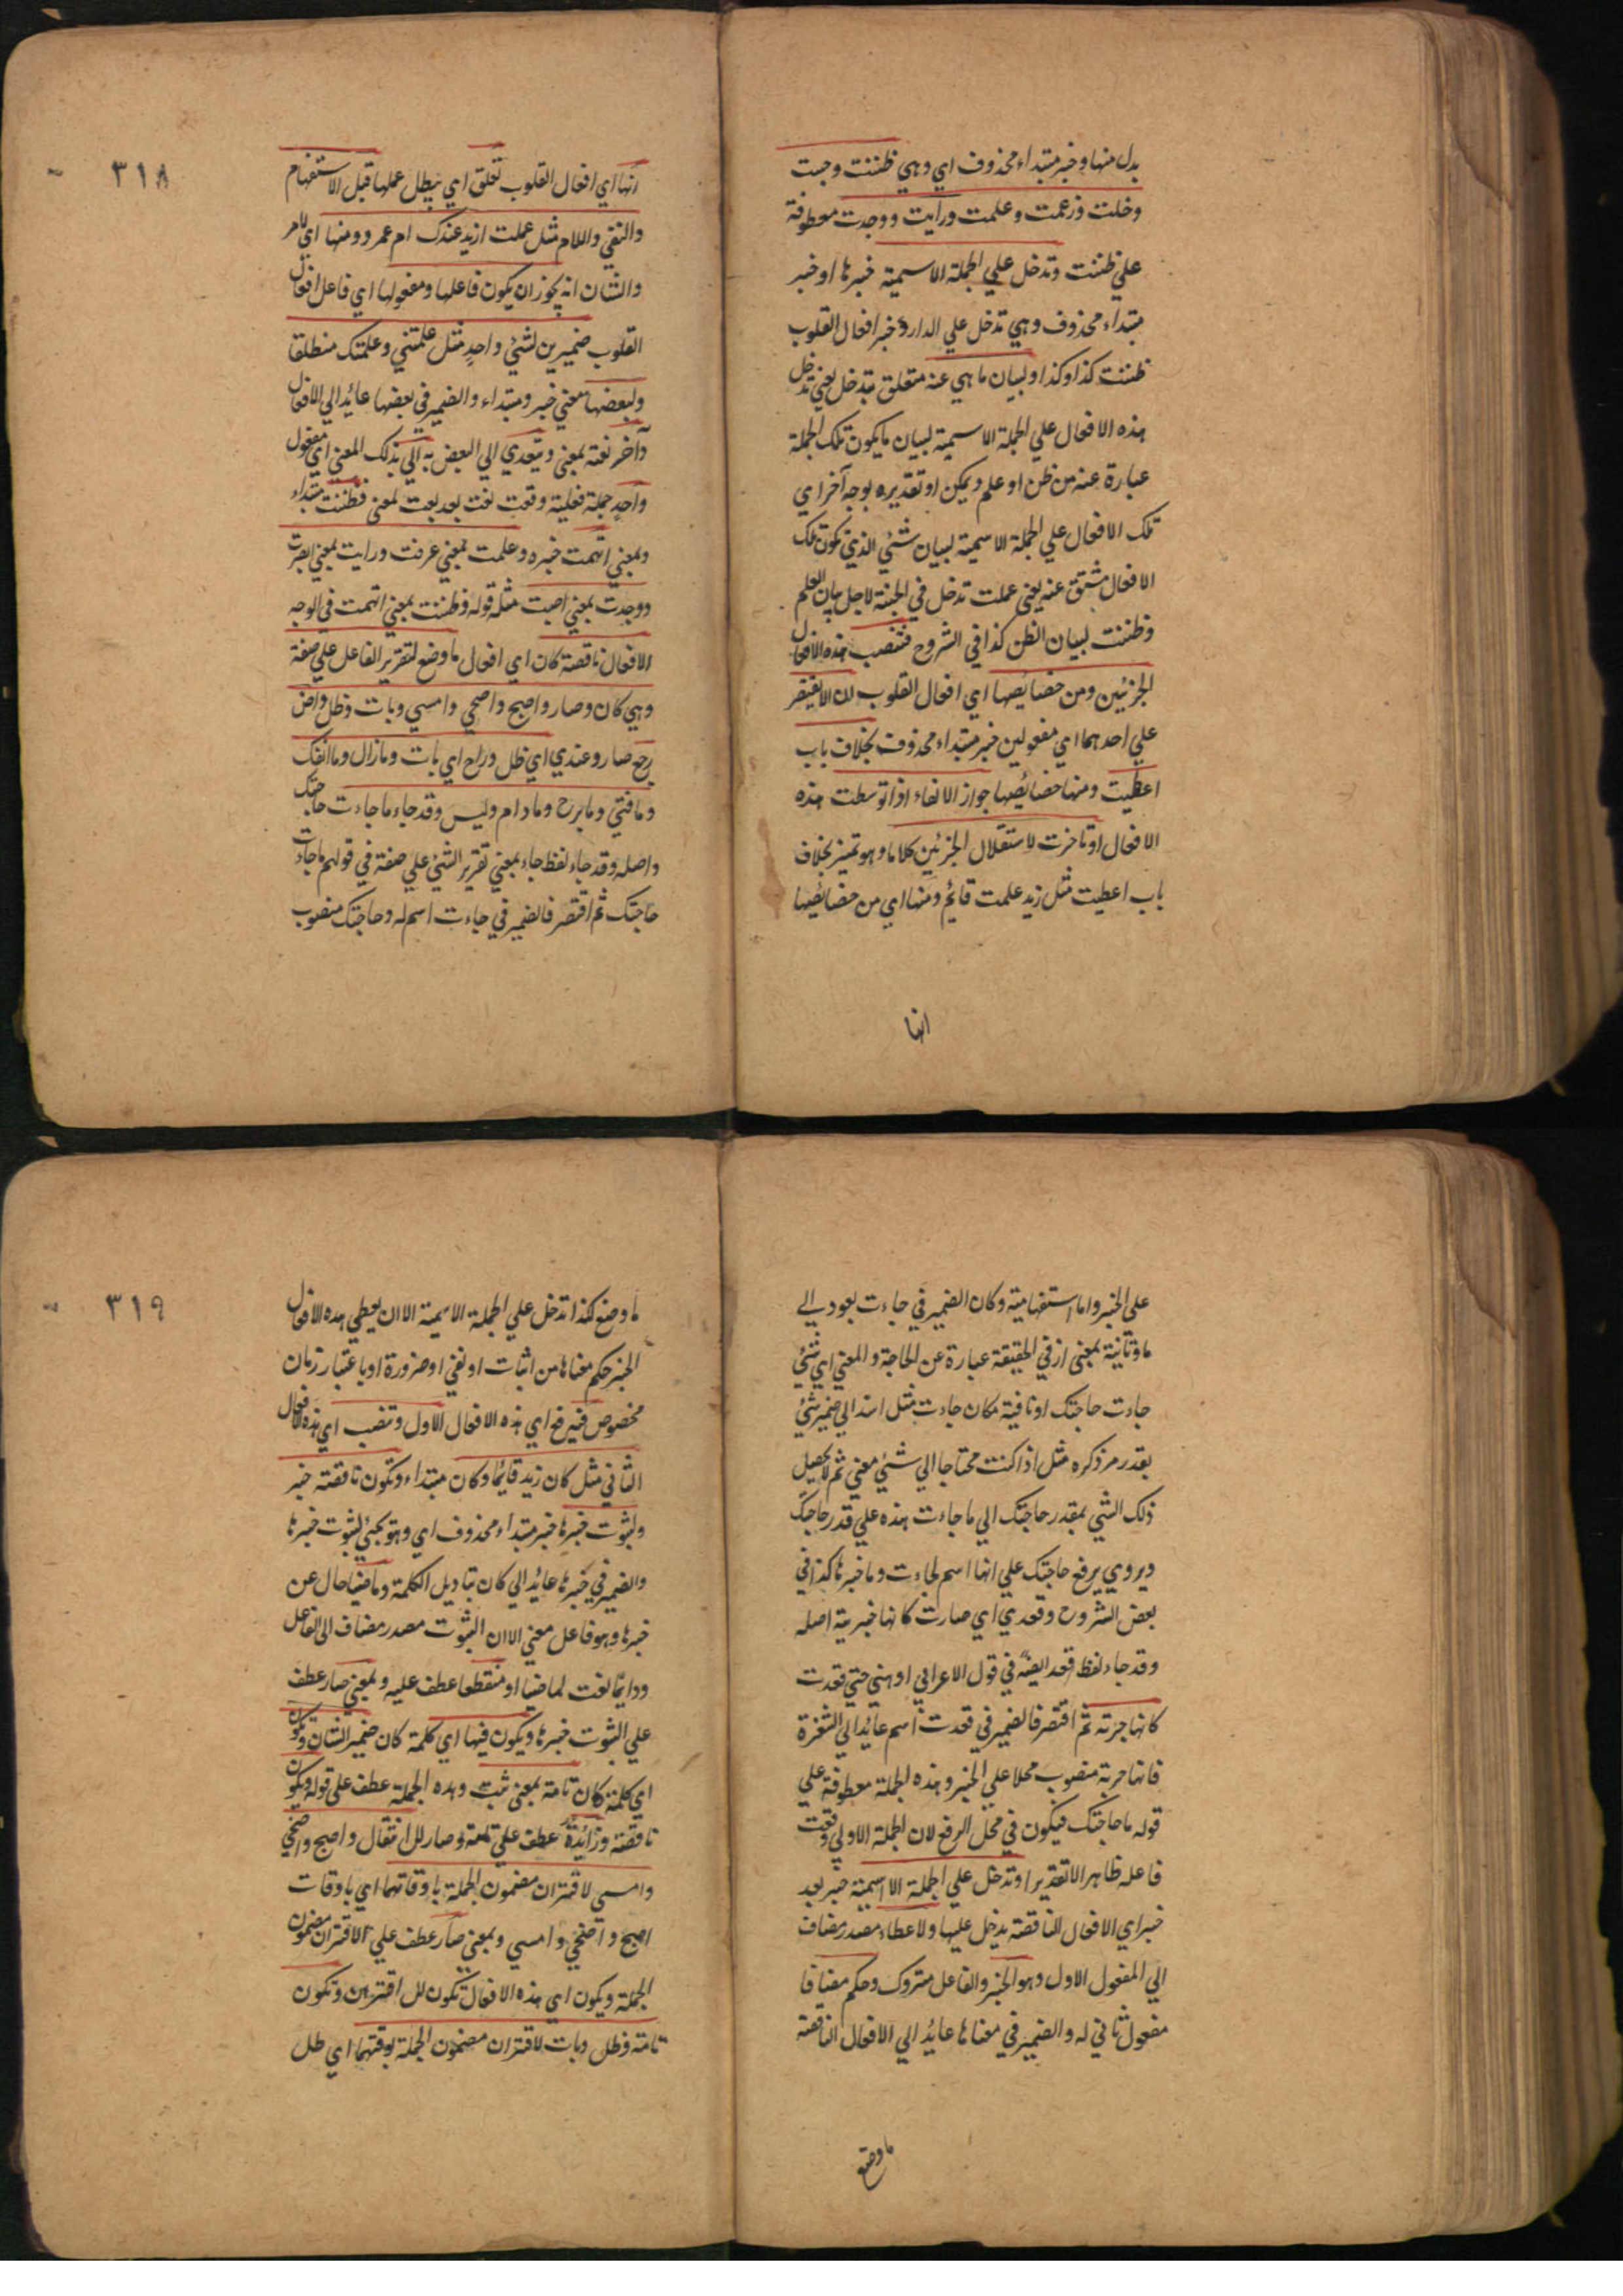 بدل منها وخبر مبتداء محذوف اي وهي ظننت وحسبت
وخلت وزعمت وعلمت ورايت ووجدت معطوفة
علي ظننت وتدخل علي الجملة الاسمية خبرها او خبر
مبتداء محذوف وهي تدخل علي الدار وخبر افعال القلوب
ظننت كذا وكذا ولبيان ما هي عنه متعلق بتدخل يعني تدخل
هذه الافعال علي الجملة الاسمية لبيان ما يكون تلك الجملة
عبارة عنه من ظن او علم ويمكن او تقديره بوجه آخر اي
تلك الافعال علي الجملة الاسمية لبيان شئي الذي تكون تلك
الافعال مشتق عنه يعني عملت تدخل في الجنة لاجل بيان العلم
وظننت لبيان الظن كذا في الشروح فتنصب هذه الافعال
الجزئين ومن خصائصها اي افعال القلوب ان لا يقتصر
علي احدهما اي مفعولين خبر مبتداء محذوف بخلاف باب
اعطيت ومنها خصائصها جواز الالغاء اذا توسطت هذه
الافعال او تاخرت لاستقلال الجزئين كلاما وهو تميز بخلاف
باب اعطيت مثل زيد علمت قائم ومنها اي من خصائصها
انها
٣١٨
انها اي افعال القلوب تعلق اي يبطل عملها قبل الاستفهام
والنفي واللام مثل عملت ازيد عندك ام عمرو ومنها اي لامر
والشان انه يجوز ان يكون فاعلها ومفعولها اي فاعل افعال
القلوب ضميرين لشئ واحد مثل علمتني وعلمتك منطلقا
ولبعضها معني خبر ومبتداء والضمير في بعضها عائد الي الافعال
وآخر نعته بمعني ويتعدي الي البعض به الي بذلك المعني اي مفعول
واحد جملة فعلية وقعت نعت بعد نعت لمعني فظننت مبتداء
وبمعني اتهمت خبره وعلمت بمعني عرفت ورايت بمعني ابصرت
ووجدت بمعني اصبت مثله قوله فظننت بمعني اتهمت في الوجه
الافعال ناقصة كان اي افعال ما وضع لتقرير الفاعل علي صفة
وهي كان وصار واصبح واضحي وامسي وبات وظل واض
رجع صار وعندي اي ظل وراح اي بات ومازال وما انفك
وما فتئ وما برح وما دام وليس وقد جاء ما جاءت حاجتك
واصله وقد جاء لفظ جاء بمعني تقرير الشئ علي صفة في قولهم ما جاءت
حاجتك ثم اقتصر فالضمير في جاءت اسم له وحاجتك منصوب
علي الخبر واما استفهامية وكان الضمير في جاءت يعود الي
ما وتانية بمعني از في الحقيقة عبارة عن الحاجة والمعني اي شئ
جاءت حاجتك او نافية مكان جاءت مثل اسند الي ضمير شئ
بقدر مر ذكره مثل اذا كنت محتاجا الي شئي معني ثم لا يحصل
ذلك الشئي بمقدر حاجتك الي ما جاءت هذه علي قدر حاجتك
ويروي برفع حاجتك علي انها اسم لجاءت وما خبرها كذا في
بعض الشروح وقعدي اي صارت كانها خبرية اصله
وقد جاء لفظ قعد ايضا في قول الاعرابي اوهني حتي قعدت
كانها حربة ثم اقتصر فالضمير في قعدت اسم عائد الي الشفرة
فانها حربة منصوب محلا علي الخبر وهذه الجملة معطوفة علي
قوله ما حاجتك فيكون في محل الرفع لان الجملة الاولي وقعت
فاعله ظاهر الا تقديرا وتدخل علي الجملة الاسمية خبر بعد
خبر اي الافعال الناقصة يدخل عليها ولاعطاء مصدر مضاف
الي المفعول الاول وهو الخبر والفاعل متروك وحكم مضافا
مفعول ثاني له والضمير في معناها عائد الي الافعال الناقصة
ما وضع
٣١٩
ما وضع كذا تدخل علي الجملة الاسمية الا ان يعطي هذه الافعال
الخبر حكم معناها من اثبات او نفي او ضرورة او باعتبار زمان
مخصوص فيرفع اي هذه الافعال الاول وتنصب اي هذه الافعال
الثاني مثل كان زيد قائما وكان مبتداء وتكون ناقصة خبر
ولثبوت خبرها خبر مبتداء محذوف اي وهو يجئ لثبوت خبرها
والضمير في خبرها عائد الي كان بتاويل الكلمة وماضيا حال عن
خبرها وهو فاعل معني الا ان الثبوت مصدر مضاف الي الفاعل
ودائما نعت لماضيا او منقطعا عطف عليه وبمعني صار عطف
علي الثبوت خبرها ويكون فيها اي كلمة كان ضمير الشان وتكون
اي كلمة كان تامة بمعني ثبت وهذه الجملة عطف علي قوله ويكون
ناقصة وزائدة عطف علي تامة وصار للانتقال واصبح واضحي
وامسي لاقتران مضمون الجملة باوقاتها اي باوقات
اصبح واضحي وامسي وبمعني صار عطف علي الاقتران مضمون
الجملة ويكون اي هذه الافعال تكون للاقتران وتكون
تامة وظل وبات لاقتران مضمون الجملة بوقتهما اي ظل